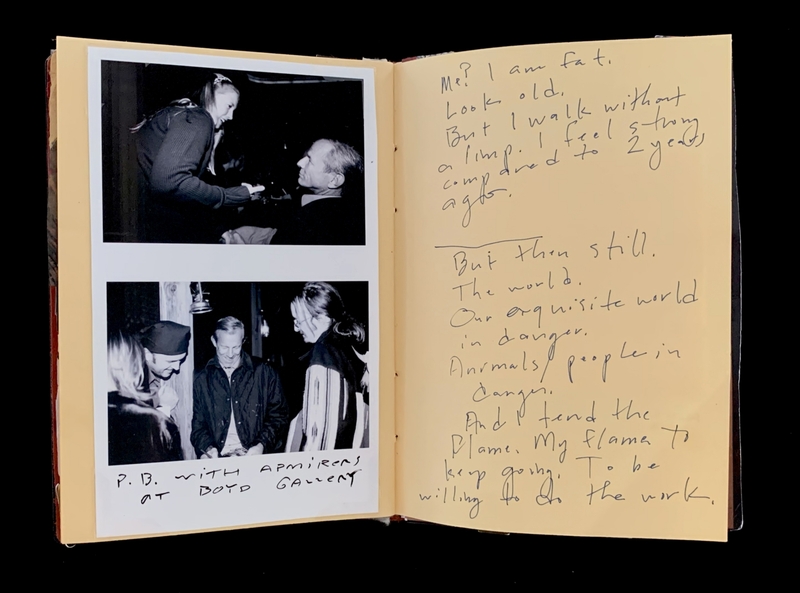 P.B. WITH ADMIRERS
AT BOYD GALLERY
Me? I am fat.
Look old.
But I walk without
a limp. I feel strong
compared to 2 years
ago.
But then still.
The world.
Our exquisite world
in danger.
Animals/people in
danger.
And I tend the
Flame. My flame to
keep going. To be
willing to do the work.